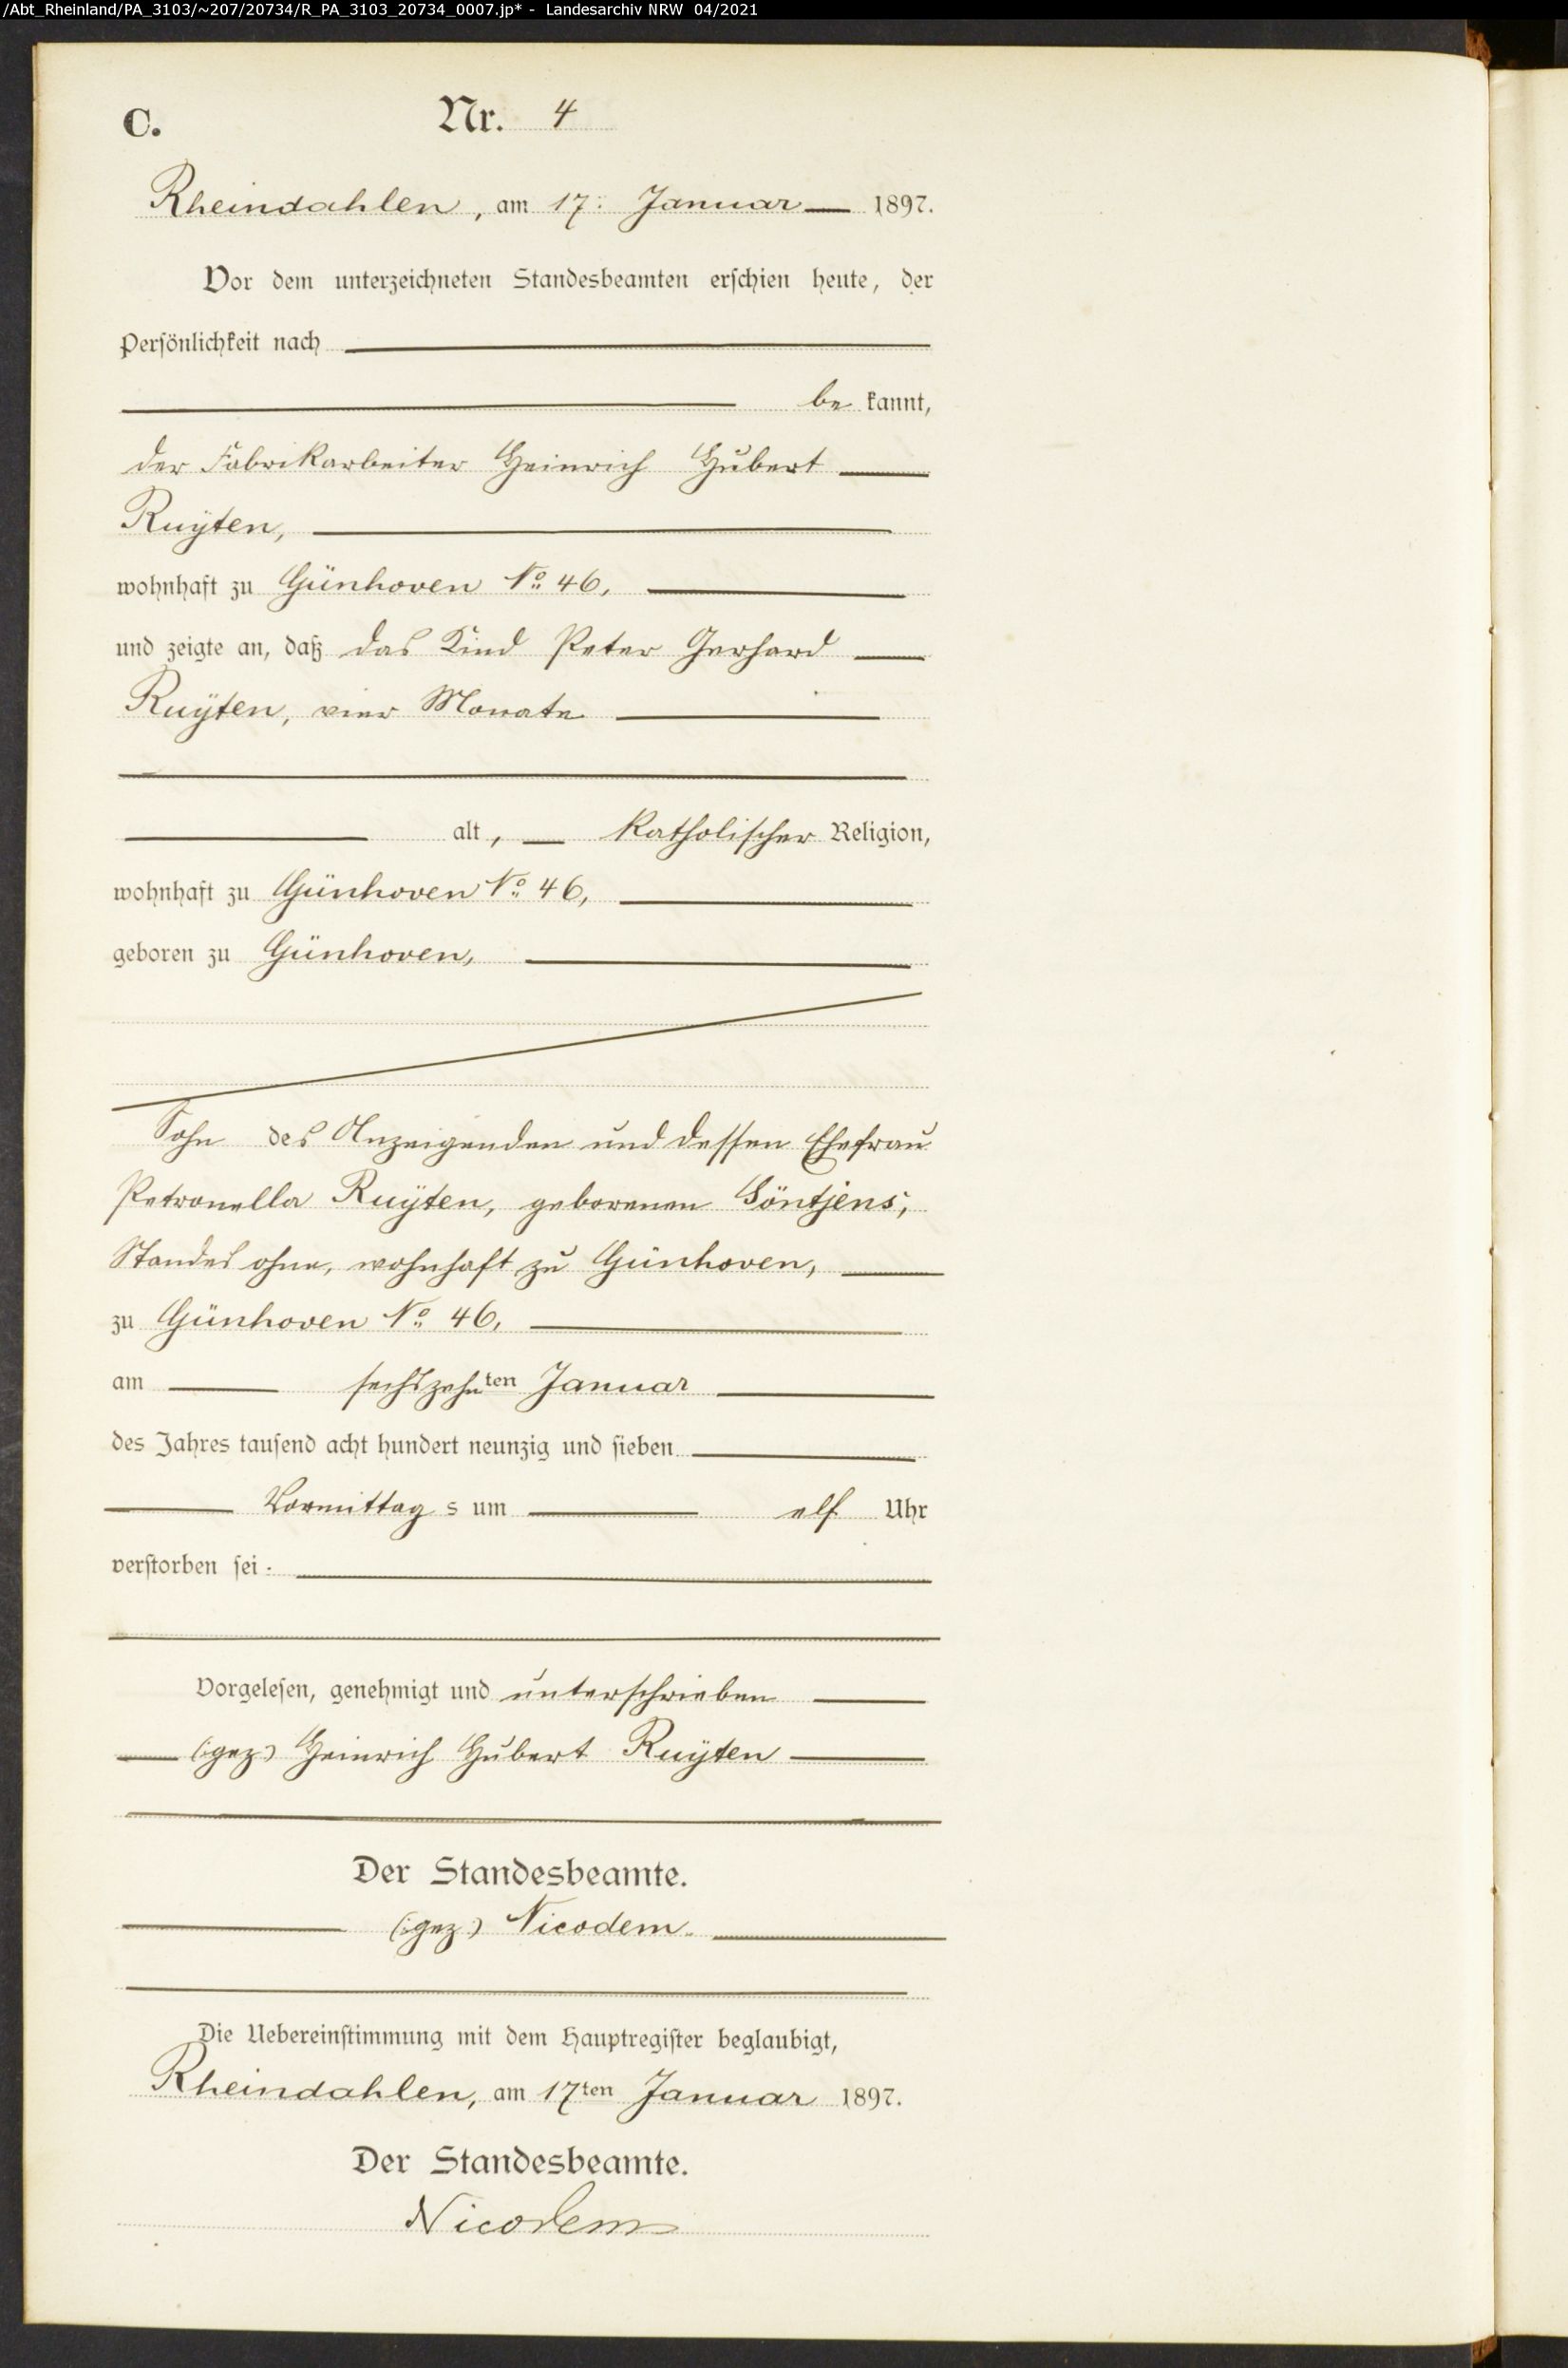 /Abt_Rheinland/PA_3103/~207/20734/R_PA_3103_20734_0007.jp* - Landesarchiv NRW 04/2021
C. Nr. 4
Rheindahlen, am 17. Januar 1897.
Vor dem unterzeichneten Standesbeamten erschien heute, der
Persönlichkeit nach
be kannt,
der Fabrikarbeiter Heinrich Hubert
Ruÿten,
wohnhaft zu Günhoven No. 46,
und zeigte an, daß das Kind Peter Gerhard
Ruÿten, vier Monate
alt, katholischer Religion,
wohnhaft zu Günhoven No. 46,
geboren zu Günhoven,
Sohn des Anzeigenden und dessen Ehefrau
Petronella Ruÿten, geborenen Göntjens,
Standes ohne, wohnhaft zu Günhoven,
zu Günhoven No. 46,
am sechszehnten Januar
des Jahres tausend acht hundert neunzig und sieben
Vormittag s um elf Uhr
verstorben sei.
Vorgelesen, genehmigt und unterschrieben
(:gez:) Heinrich Hubert Ruÿten
Der Standesbeamte.
(:gez:) Nicodem.
Die Uebereinstimmung mit dem Hauptregister beglaubigt,
Rheindahlen, am 17ten Januar 1897.
Der Standesbeamte.
Nicodem